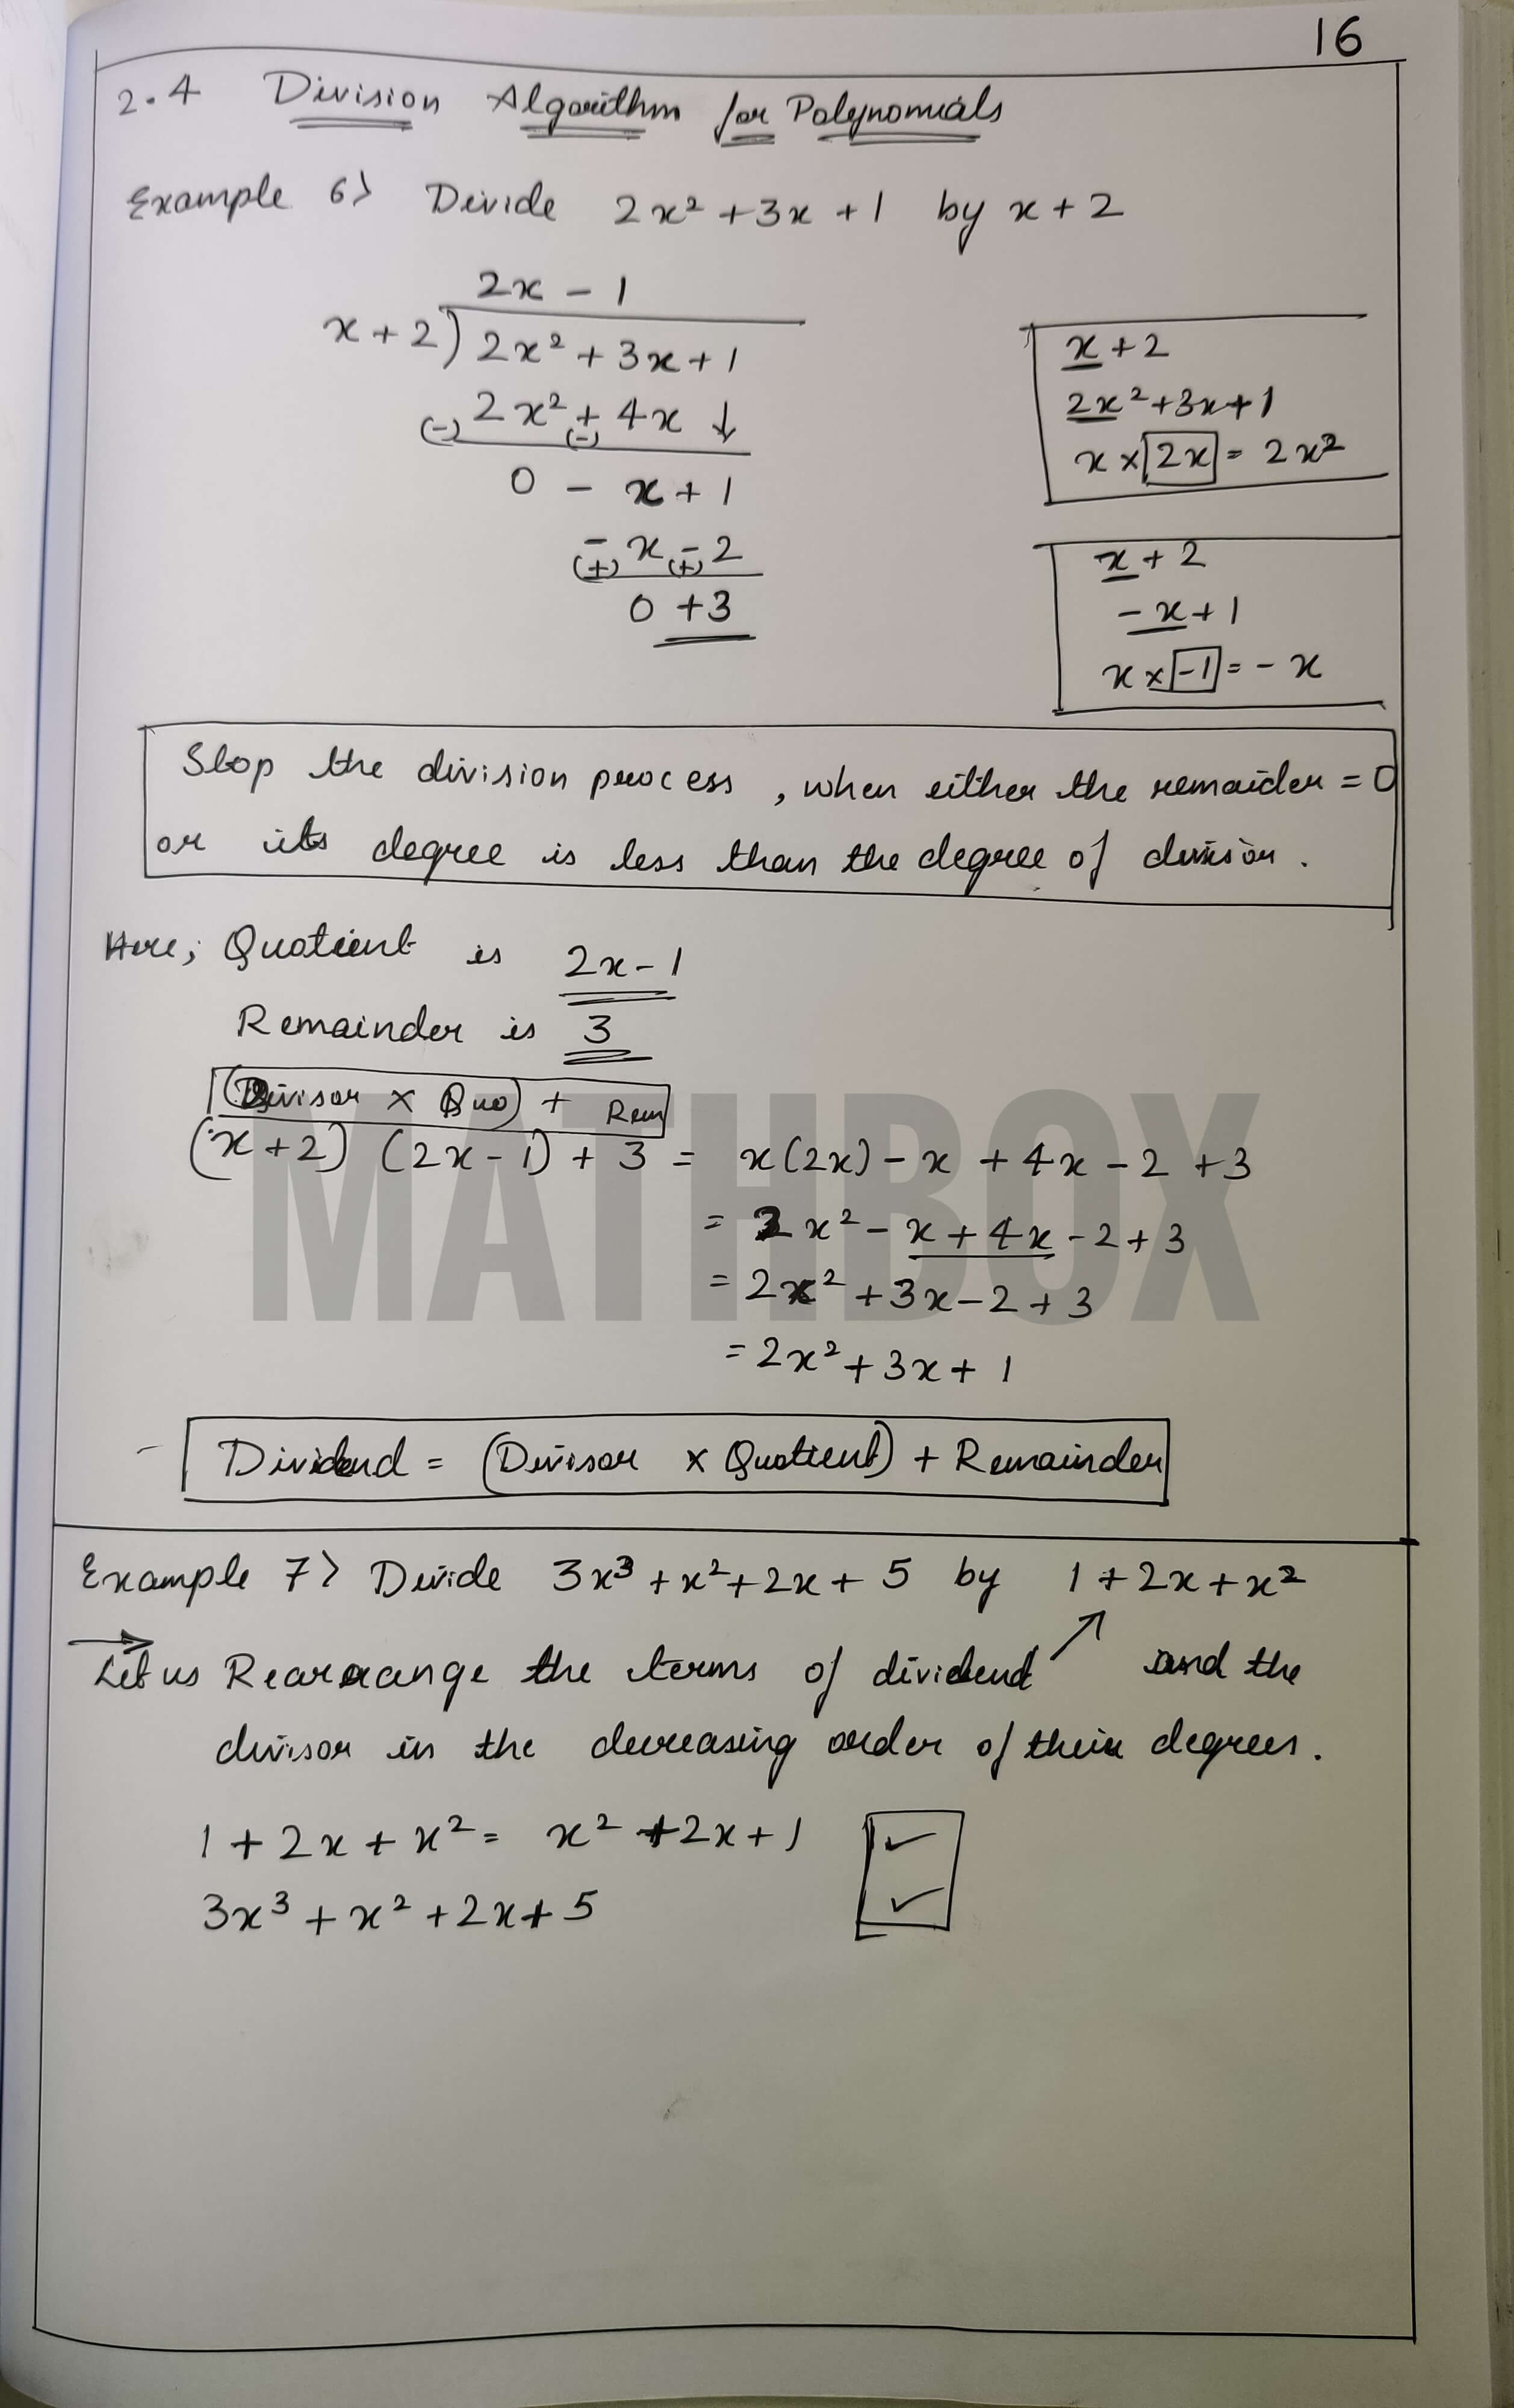 16
2.4 Division Algorithm for Polynomials
Example 6> Divide 2x² + 3x + 1 by x + 2
2x - 1
x + 2 ) 2x² + 3x + 1
(-) 2x² + (-) 4x ↓
0 - x + 1
- (+) x - (+) 2
0 + 3
x + 2
2x² + 3x + 1
x × 2x = 2x²
x + 2
- x + 1
x × -1 = - x
Stop the division process , when either the remaider = 0
or its degree is less than the degree of divisor .
Here, Quotient is 2x - 1
Remainder is 3
(Divisor × Quo) + Rem
(x + 2) (2x - 1) + 3 = x(2x) - x + 4x - 2 + 3
= 2x² - x + 4x - 2 + 3
= 2x² + 3x - 2 + 3
= 2x² + 3x + 1
MATHBOX
- Dividend = (Divisor × Quotient) + Remainder
Example 7> Divide 3x³ + x² + 2x + 5 by 1 + 2x + x²
→ Let us Rearrange the terms of dividend ↗ and the
divisor in the decreasing order of their degrees .
1 + 2x + x² = x² + 2x + 1 ✓
3x³ + x² + 2x + 5 ✓